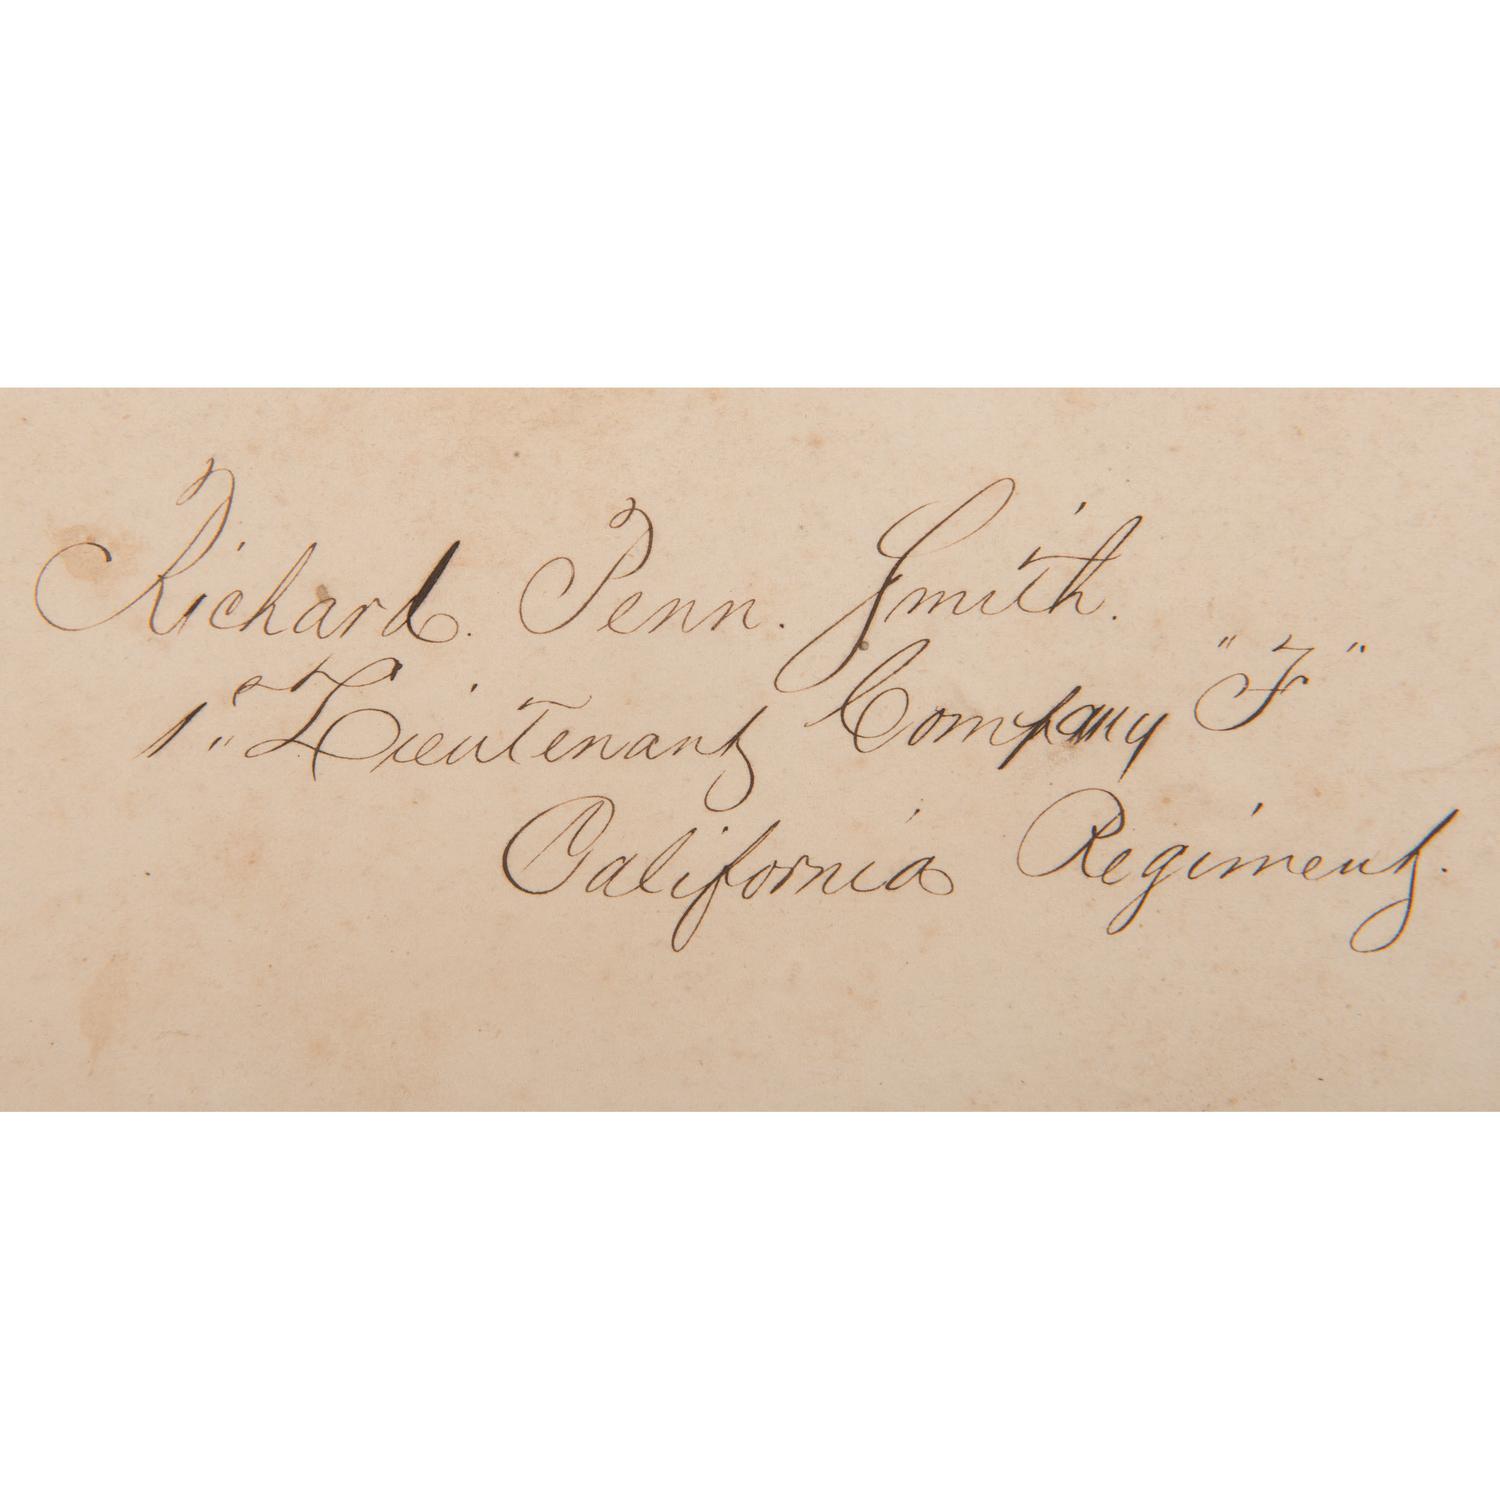 Richard. Penn. Smith.
1st Lieutenant Company "F"
California Regiment.